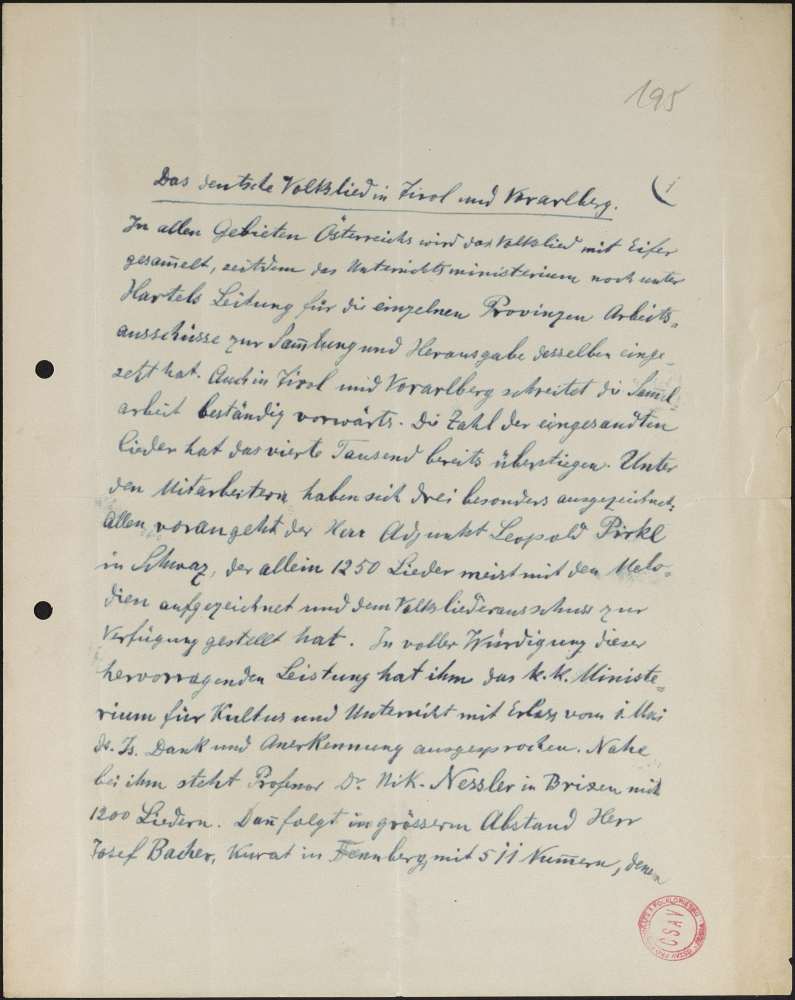 195
(1
Das deutsche Volkslied in Tirol und Vorarlberg.
In allen Gebieten Österreichs wird das Volkslied mit Eifer
gesam̄elt, seitdem das Unterrichtsministerium noch unter
Hartels Leitung für die einzelnen Provinzen Arbeits-
ausschüsse zur Sam̄lung und Herausgabe desselben einge-
setzt hat. Auch in Tirol und Vorarlberg schreitet die Sam̄el-
arbeit beständig vorwärts. Die Zahl der eingesandten
Lieder hat das vierte Tausend bereits überstiegen. Unter
den Mitarbeitern haben sich drei besonders ausgezeichnet.
Allen voran geht der Herr Adjunkt Leopold Pirkl
in Schwaz, der allein 1250 Lieder meist mit den Melo-
dien aufgezeichnet und dem Volksliederausschuss zur
Verfügung gestellt hat. In voller Würdigung dieser
hervorragenden Leistung hat ihm das k.k. Ministe-
rium für Kultus und Unterricht mit Erlass vom 1. Mai
ds. Js. Dank und Anerkennung ausgesprochen. Nahe
bei ihm steht Professor Dr. Nik. Nessler in Brixen mit
1200 Liedern. Dan̄ folgt in grösserm Abstand Herr
Josef Bacher, Kurat in Fennberg, mit 511 Num̄ern, denen
ČSAV